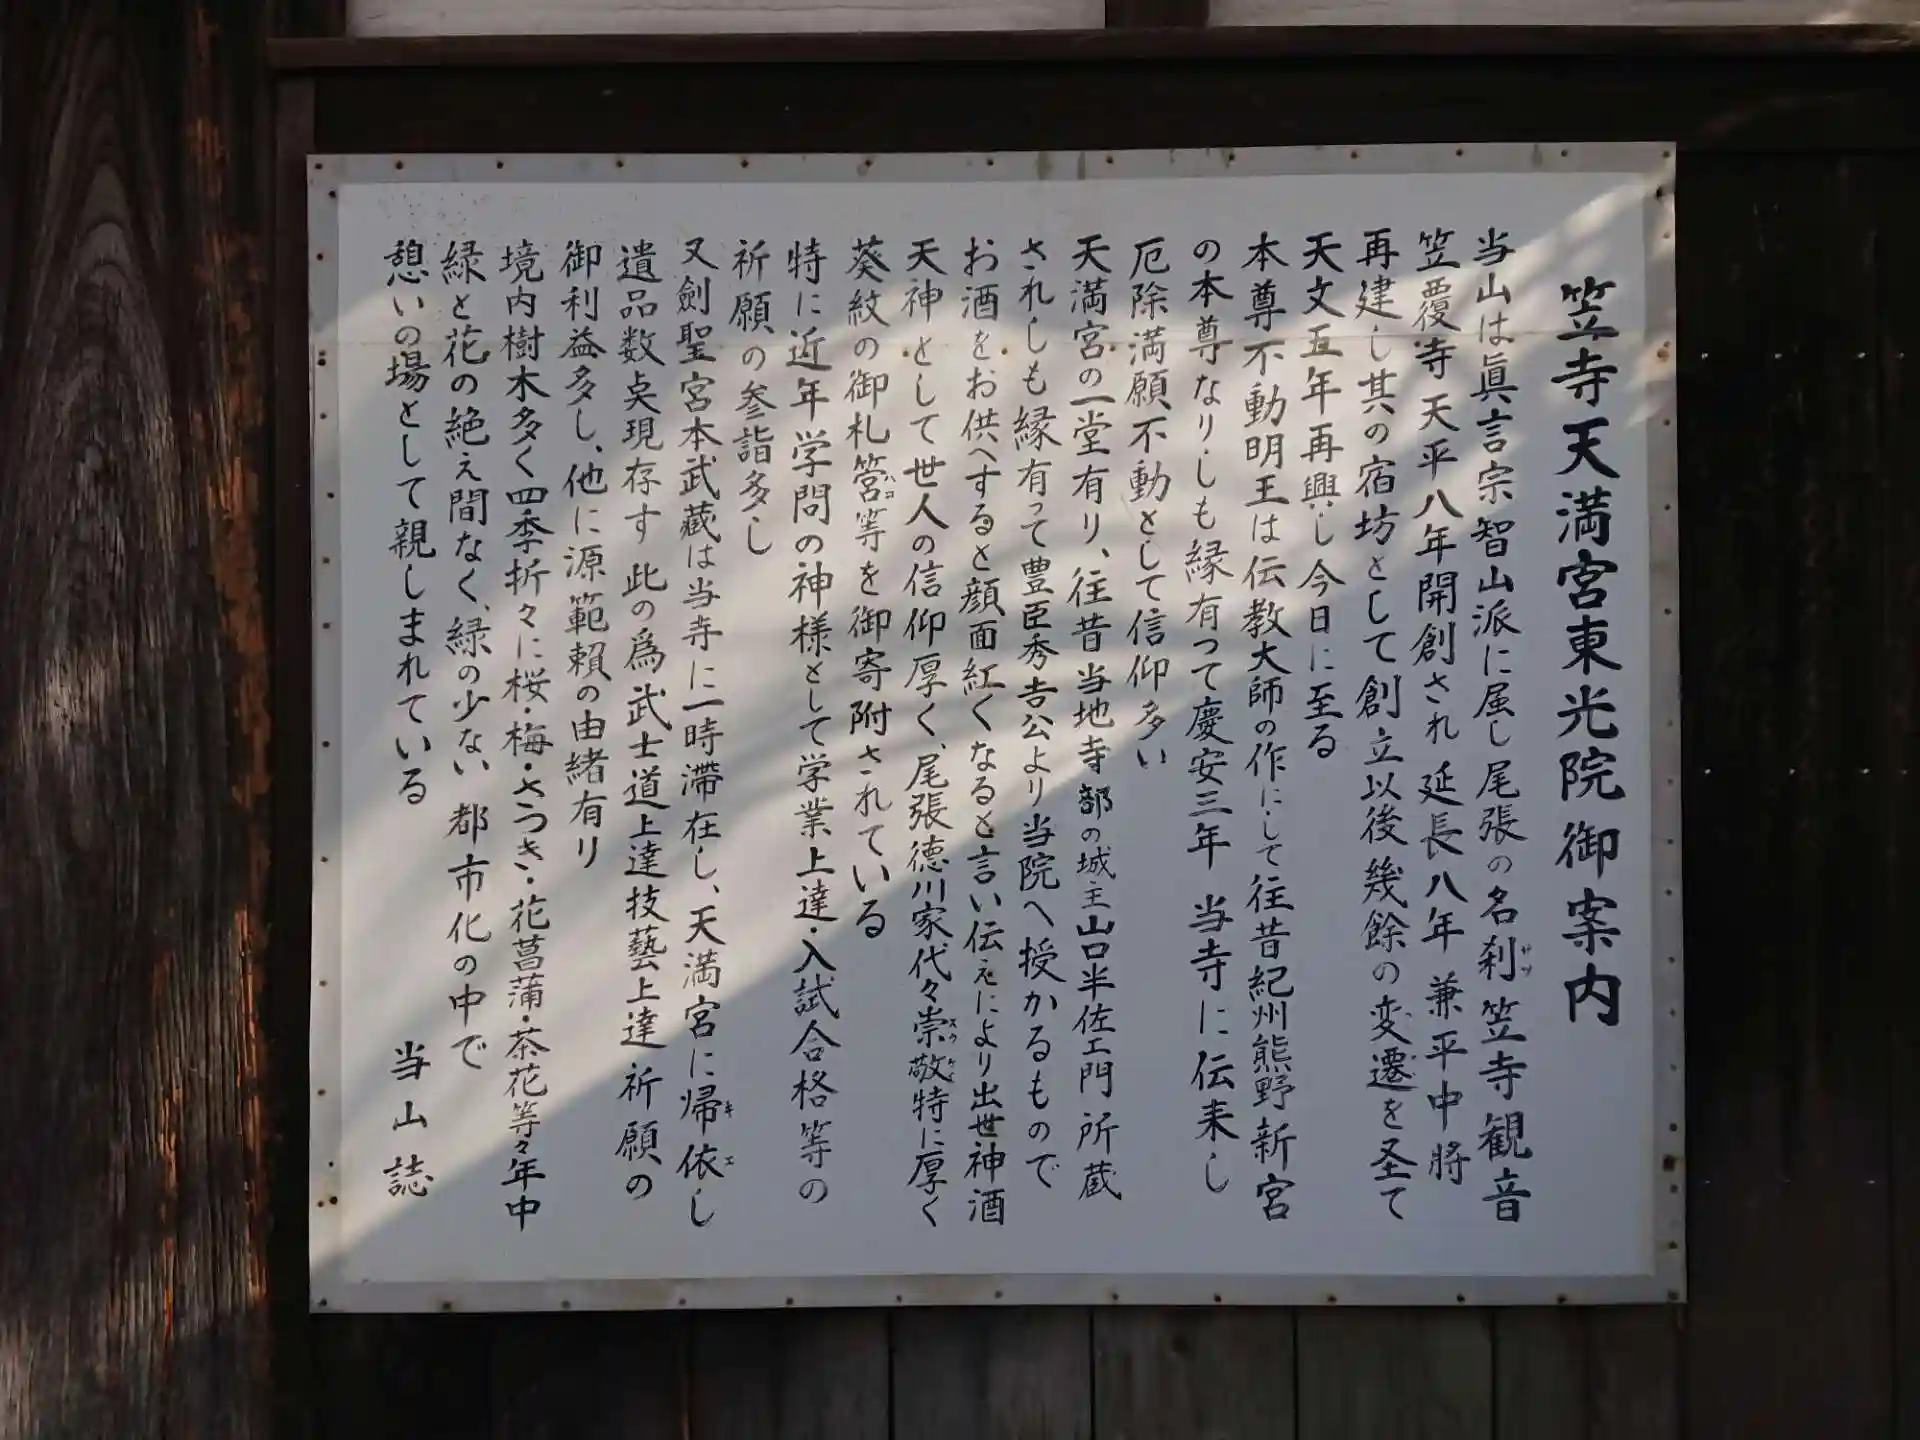 笠寺天満宮東光院御案内
当山は眞言宗智山派に属し尾張の名刹笠寺観音
笠覆寺天平八年開創され延長八年兼平中将
再建し其の宿坊として創立以後幾餘の変遷を圣て
天文五年再興し今日に至る
本尊不動明王は伝教大師の作にして往昔紀州熊野新宮
の本尊なりしも縁有つて慶安三年当寺に伝来し
厄除満願不動として信仰多い
天満宮の一堂有り、往昔当地寺部の城主山口半佐エ門所蔵
されしも縁有って豊臣秀吉公より当院へ授かるもので
お酒をお供へすると顔面紅くなると言い伝えにより出世神酒
天神として世人の信仰厚く、尾張徳川家代々崇敬特に厚く
葵紋の御札筥等を御寄附されている
特に近年学問の神様として学業上達・入試合格等の
祈願の参詣多し
又劍聖宮本武蔵は当寺に一時滞在し、天満宮に帰依し
遺品数奌現存す此の爲武士道上達技藝上達祈願の
御利益多し、他に源範賴の由緒有り
境内樹木多く四季折々に桜・梅・さつき・花菖蒲・茶花等々年中
緑と花の絶え間なく、緑の少ない都市化の中で
憩いの場として親しまれている
当山誌